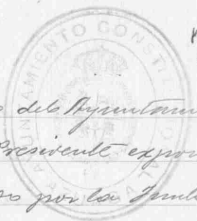 AYUNTAMIENTO CONSTI
del Ayuntam
Presidente expon
por la Junta